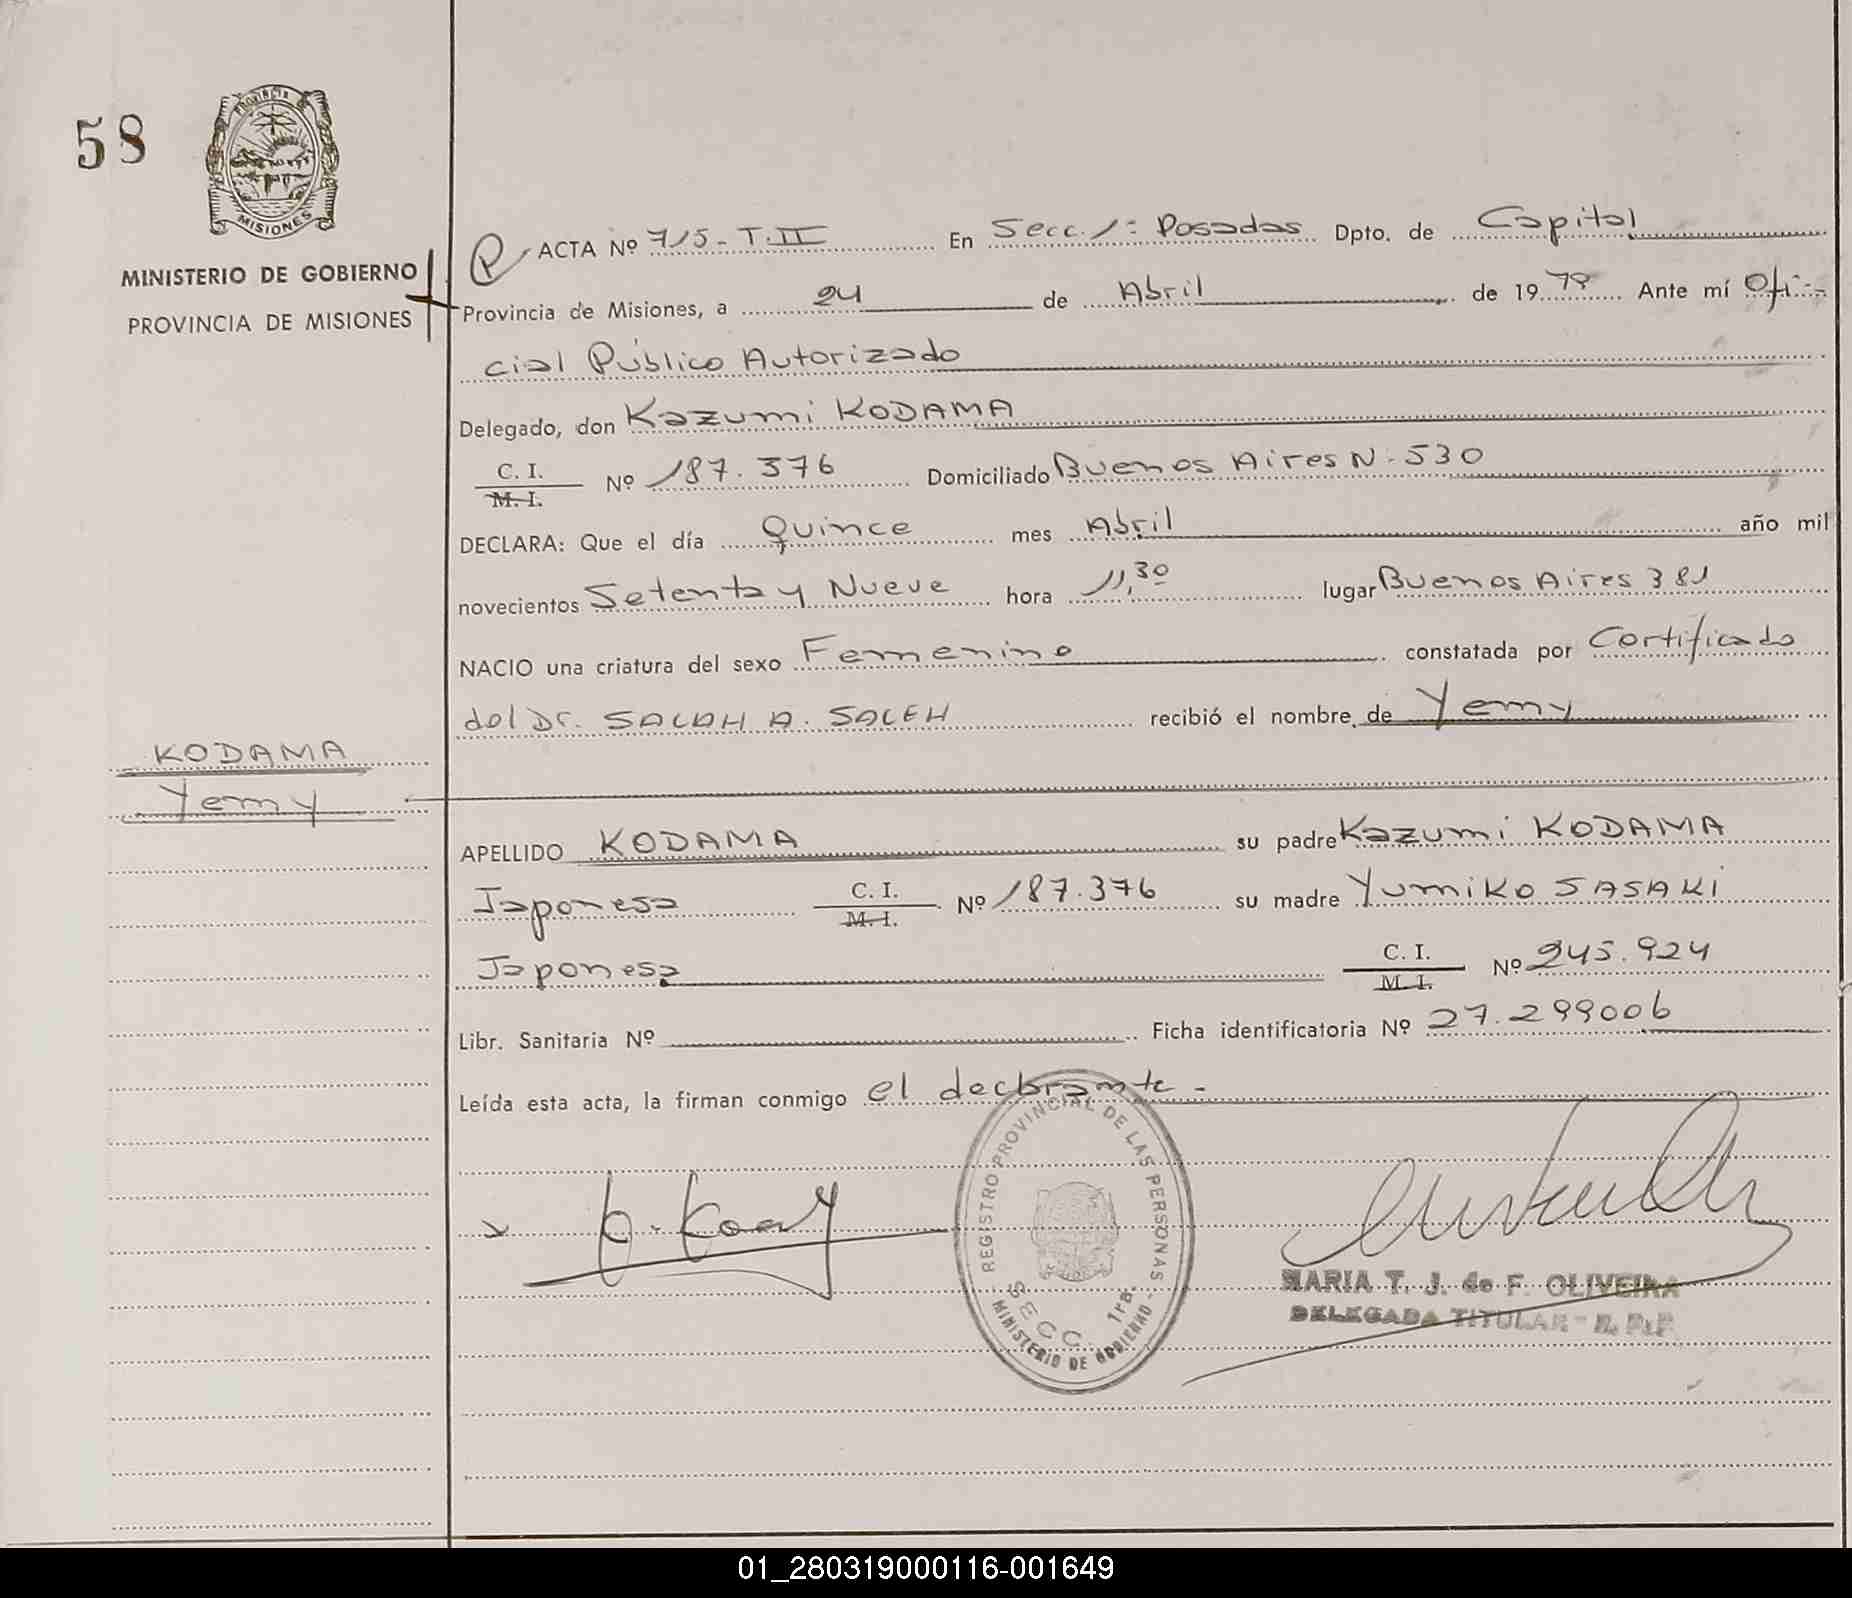 58
PROVINCIA DE
MISIONES
MINISTERIO DE GOBIERNO
PROVINCIA DE MISIONES
ACTA Nº 715 - T. II En Secc. 1ª Posadas Dpto. de Capital
Provincia de Misiones, a 24 de Abril de 1979 Ante mí Ofi-
cial Público Autorizado
Delegado, don Kazumi KODAMA
C. I.
M. I. Nº 187.376 Domiciliado Buenos Aires N. 530
DECLARA: Que el día Quince mes Abril año mil
novecientos Setenta y Nueve hora 11,30 lugar Buenos Aires 381
NACIO una criatura del sexo Femenino constatada por Certificado
del Dr. SALAH A. SALEH recibió el nombre de Yemy
KODAMA
Yemy
APELLIDO KODAMA su padre Kazumi KODAMA
Japonesa C. I. M. I. Nº 187.376 su madre Yumiko SASAKI
Japonesa C. I. M. I. Nº 245.924
Libr. Sanitaria Nº Ficha identificatoria Nº 27.299006
Leída esta acta, la firman conmigo el declarante -
REGISTRO PROVINCIAL DE LAS PERSONAS
SECC. 1ra.
MINISTERIO DE GOBIERNO
MARIA T. J. de F. OLIVEIRA
DELEGADA TITULAR - R. P. P.
01_280319000116-001649